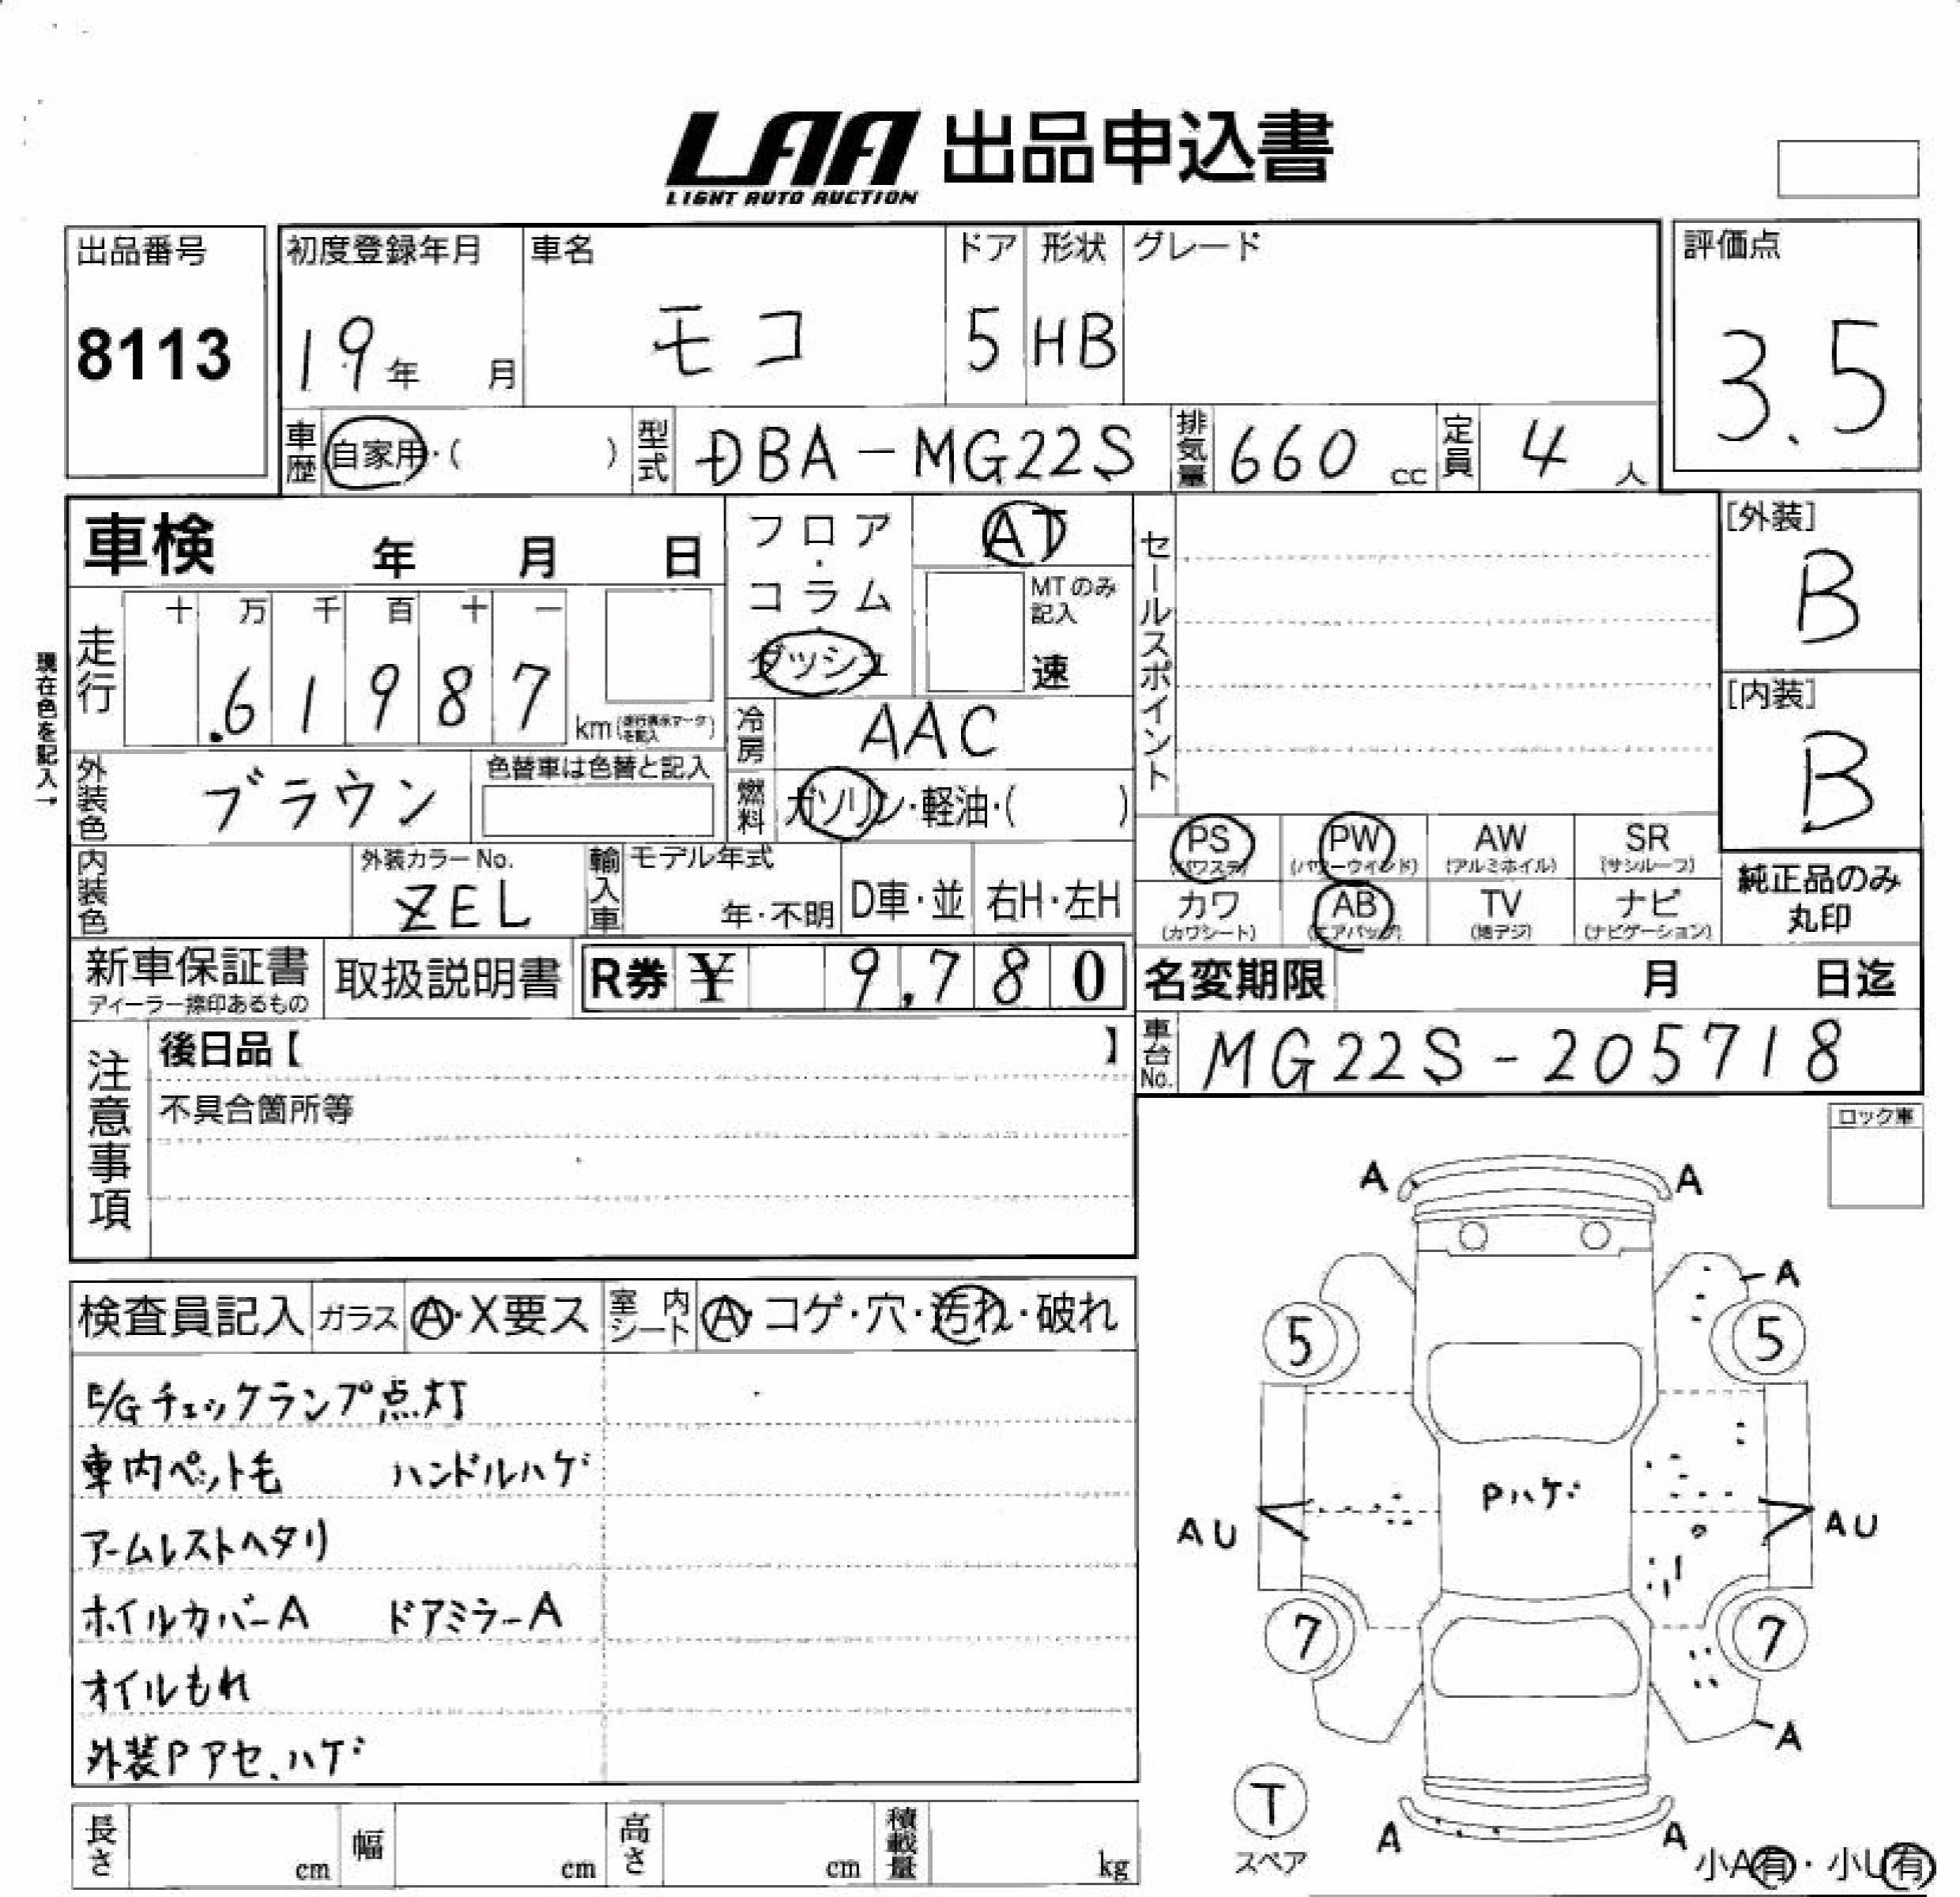 LAA 出品申込書
LIGHT AUTO AUCTION
出品番号
8113
初度登録年月
19年 月
車名
モコ
ドア
5
形状
HB
グレード
評価点
3.5
車歴 自家用・( )
型式 DBA-MG22S
排気量 660 cc
定員 4 人
車検 年 月 日
フロア・コラム・ダッシュ
AT
MTのみ記入
速
セールスポイント
[外装]
B
[内装]
B
現在色を記入→
走行
十 万 千 百 十 一
.61987
km(走行表示マークを記入)
冷房 AAC
外装色 ブラウン
色替車は色替と記入
燃料 ガソリン・軽油・( )
PS (パワステ)
PW (パワーウインド)
AW (アルミホイル)
SR (サンルーフ)
カワ (カワシート)
AB (エアバッグ)
TV (地デジ)
ナビ (ナビゲーション)
純正品のみ丸印
内装色
外装カラーNo.
ZEL
輸入車
モデル年式
年・不明
D車・並
右H・左H
新車保証書
ディーラー捺印あるもの
取扱説明書
R券 ¥ 9,780
名変期限 月 日迄
車台No. MG22S-205718
注意事項
後日品【 】
不具合箇所等
ロック車
検査員記入
ガラス A・X要ス
室内シート A・コゲ・穴・汚れ・破れ
E/Gチェックランプ点灯
車内ペット毛 ハンドルハゲ
アームレストヘタリ
ホイルカバーA ドアミラーA
オイルもれ
外装Pアセ、ハゲ
A A
A
5 5
Pハゲ
AU AU
7 7
A
T
スペア
A A
小A有・小U有
長さ cm
幅 cm
高さ cm
積載量 kg